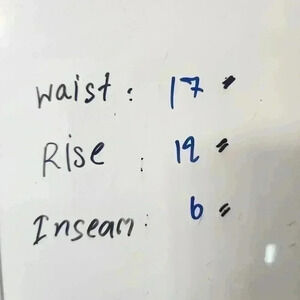 Waist : 17 "
Rise : 12 "
Inseam : 6 "